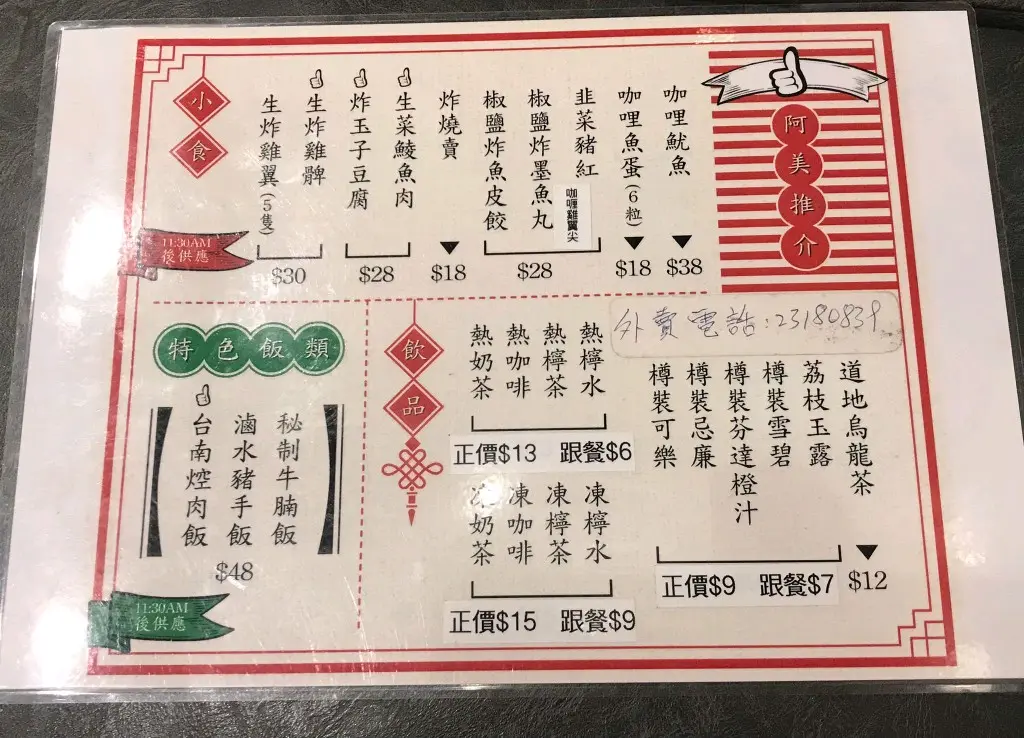 阿美推介
咖哩魷魚
$38
咖哩魚蛋(6粒)
$18
韭菜豬紅
咖喱雞翼尖
椒鹽炸墨魚丸
椒鹽炸魚皮餃
$28
炸燒賣
$18
生菜鯪魚肉
炸玉子豆腐
$28
生炸雞髀
生炸雞翼(5隻)
$30
小食
11:30AM
後供應
外賣電話:23180839
道地烏龍茶
$12
荔枝玉露
樽裝雪碧
樽裝芬達橙汁
樽裝忌廉
樽裝可樂
正價$9 跟餐$7
熱檸水
熱檸茶
熱咖啡
熱奶茶
正價$13 跟餐$6
凍檸水
凍檸茶
凍咖啡
凍奶茶
正價$15 跟餐$9
飲品
特色飯類
秘制牛腩飯
滷水豬手飯
台南焢肉飯
$48
11:30AM
後供應